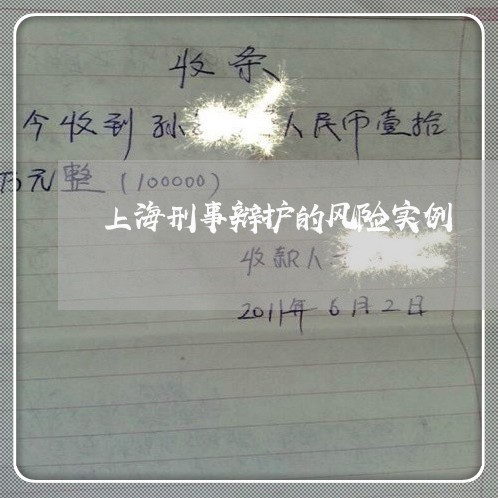 收条
今收到孙 人民币壹拾
万元整（100000）
上海刑事辩护的风险实例
收款人
2011年6月2日